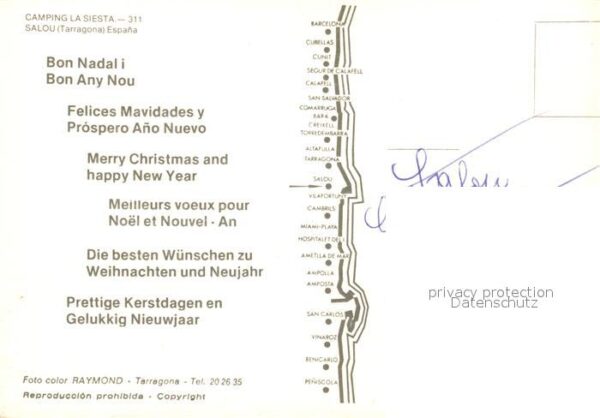 CAMPING LA SIESTA. — 311
SALOU (Tarragona) España
Bon Nadal i
Bon Any Nou
Felices Mavidades y
Próspero Año Nuevo
Merry Christmas and
happy New Year
Meilleurs voeux pour
Noël et Nouvel - An
Die besten Wünschen zu
Weihnachten und Neujahr
Prettige Kerstdagen en
Gelukkig Nieuwjaar
Foto color RAYMOND - Tarragona - Tel. 20 26 35
Reproducción prohibida - Copyright
BARCELONA
CUBELLAS
CUNIT
SEGUR DE CALAFELL
CALAFELL
SAN SALVADOR
COMARRUGA
BARA
CREIXELL
TORREDEMBARRA
ALTAFULLA
TARRAGONA
SALOU
VILAFORTUNY
CAMBRILS
MIAMI-PLAYA
HOSPITALET DEL I.
AMETLLA DE MAR
AMPOLLA
AMPOSTA
SAN CARLOS
VINAROZ
BENICARLO
PEÑISCOLA
Salou
privacy protection
Datenschutz